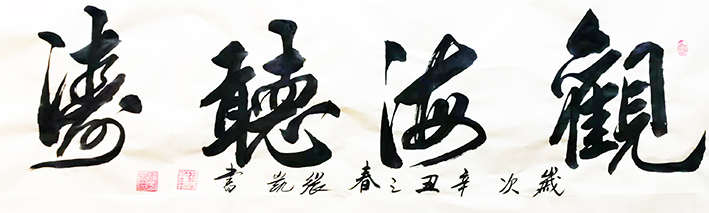 觀海聽濤
歲次辛丑之春張凱書